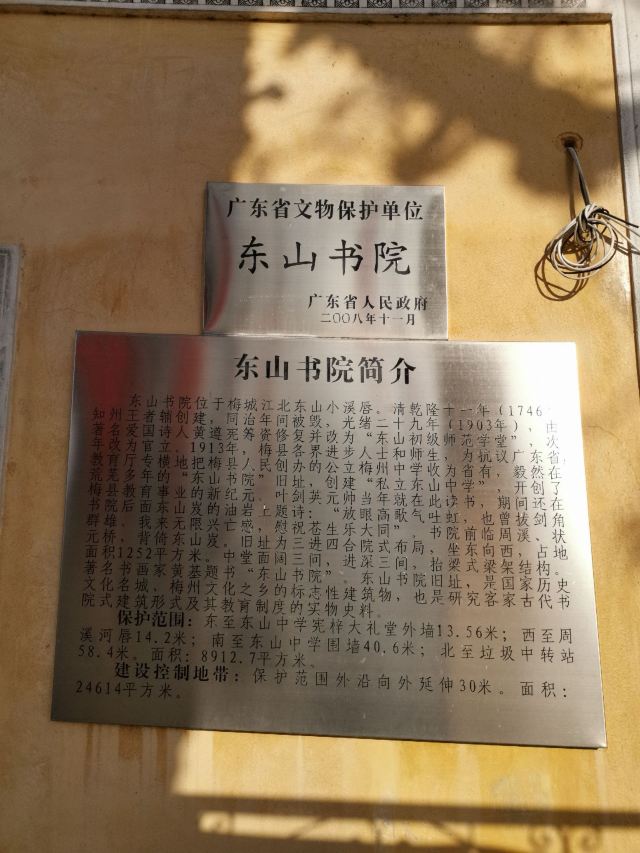 广东省文物保护单位
东山书院
广东省人民政府
二〇〇八年十一月
东山书院简介
东山书院位于梅城江北东山小溪唇。清乾隆十一年（1746
知州王者辅创建，同治年间被毁，光绪二十九年（1903年），由
著名爱国诗人黄遵宪筹资修复并改为“东山初级师范学堂”，次
年改为官立。1913年，梅县各界进步人士和师生，为抗议广东省
教育厅专横地把梅县人民创办的公立梅州中学收为省有，毅然在
荒芜多年的“东山书院”旧址，创建“私立东山中学”，开创了
梅县教育事业的新纪元。叶剑英元帅当年就在此读书，期间还在
书院后面东山岌的油岩上题诗：“放眼高歌气吐虹，也曾拔剑角
群雄。我来无限兴亡感，慰祝苍生乐大同”，书院前临周溪、状
元桥，背倚东山岌。旧址为三进四合院式布局，坐东向西，占地
面积1252平方米。中堂面阔三间，进深三间，抬梁式梁架结构。
著名书画家黄基题书“东山书院”。东山书院旧址，是国家历史
文化名城，梅州文化之乡的标志性建筑物，也是研究客家古代书
院式建筑形式及其教育制度的实物史料。
保护范围：东至东山中学宪梓大礼堂外墙13.56米；西至周
溪河唇14.2米；南至东山中学围墙40.6米；北至垃圾中转站
58.4米。面积：8912.7平方米。
建设控制地带：保护范围外沿向外延伸30米。面积：
24614平方米。